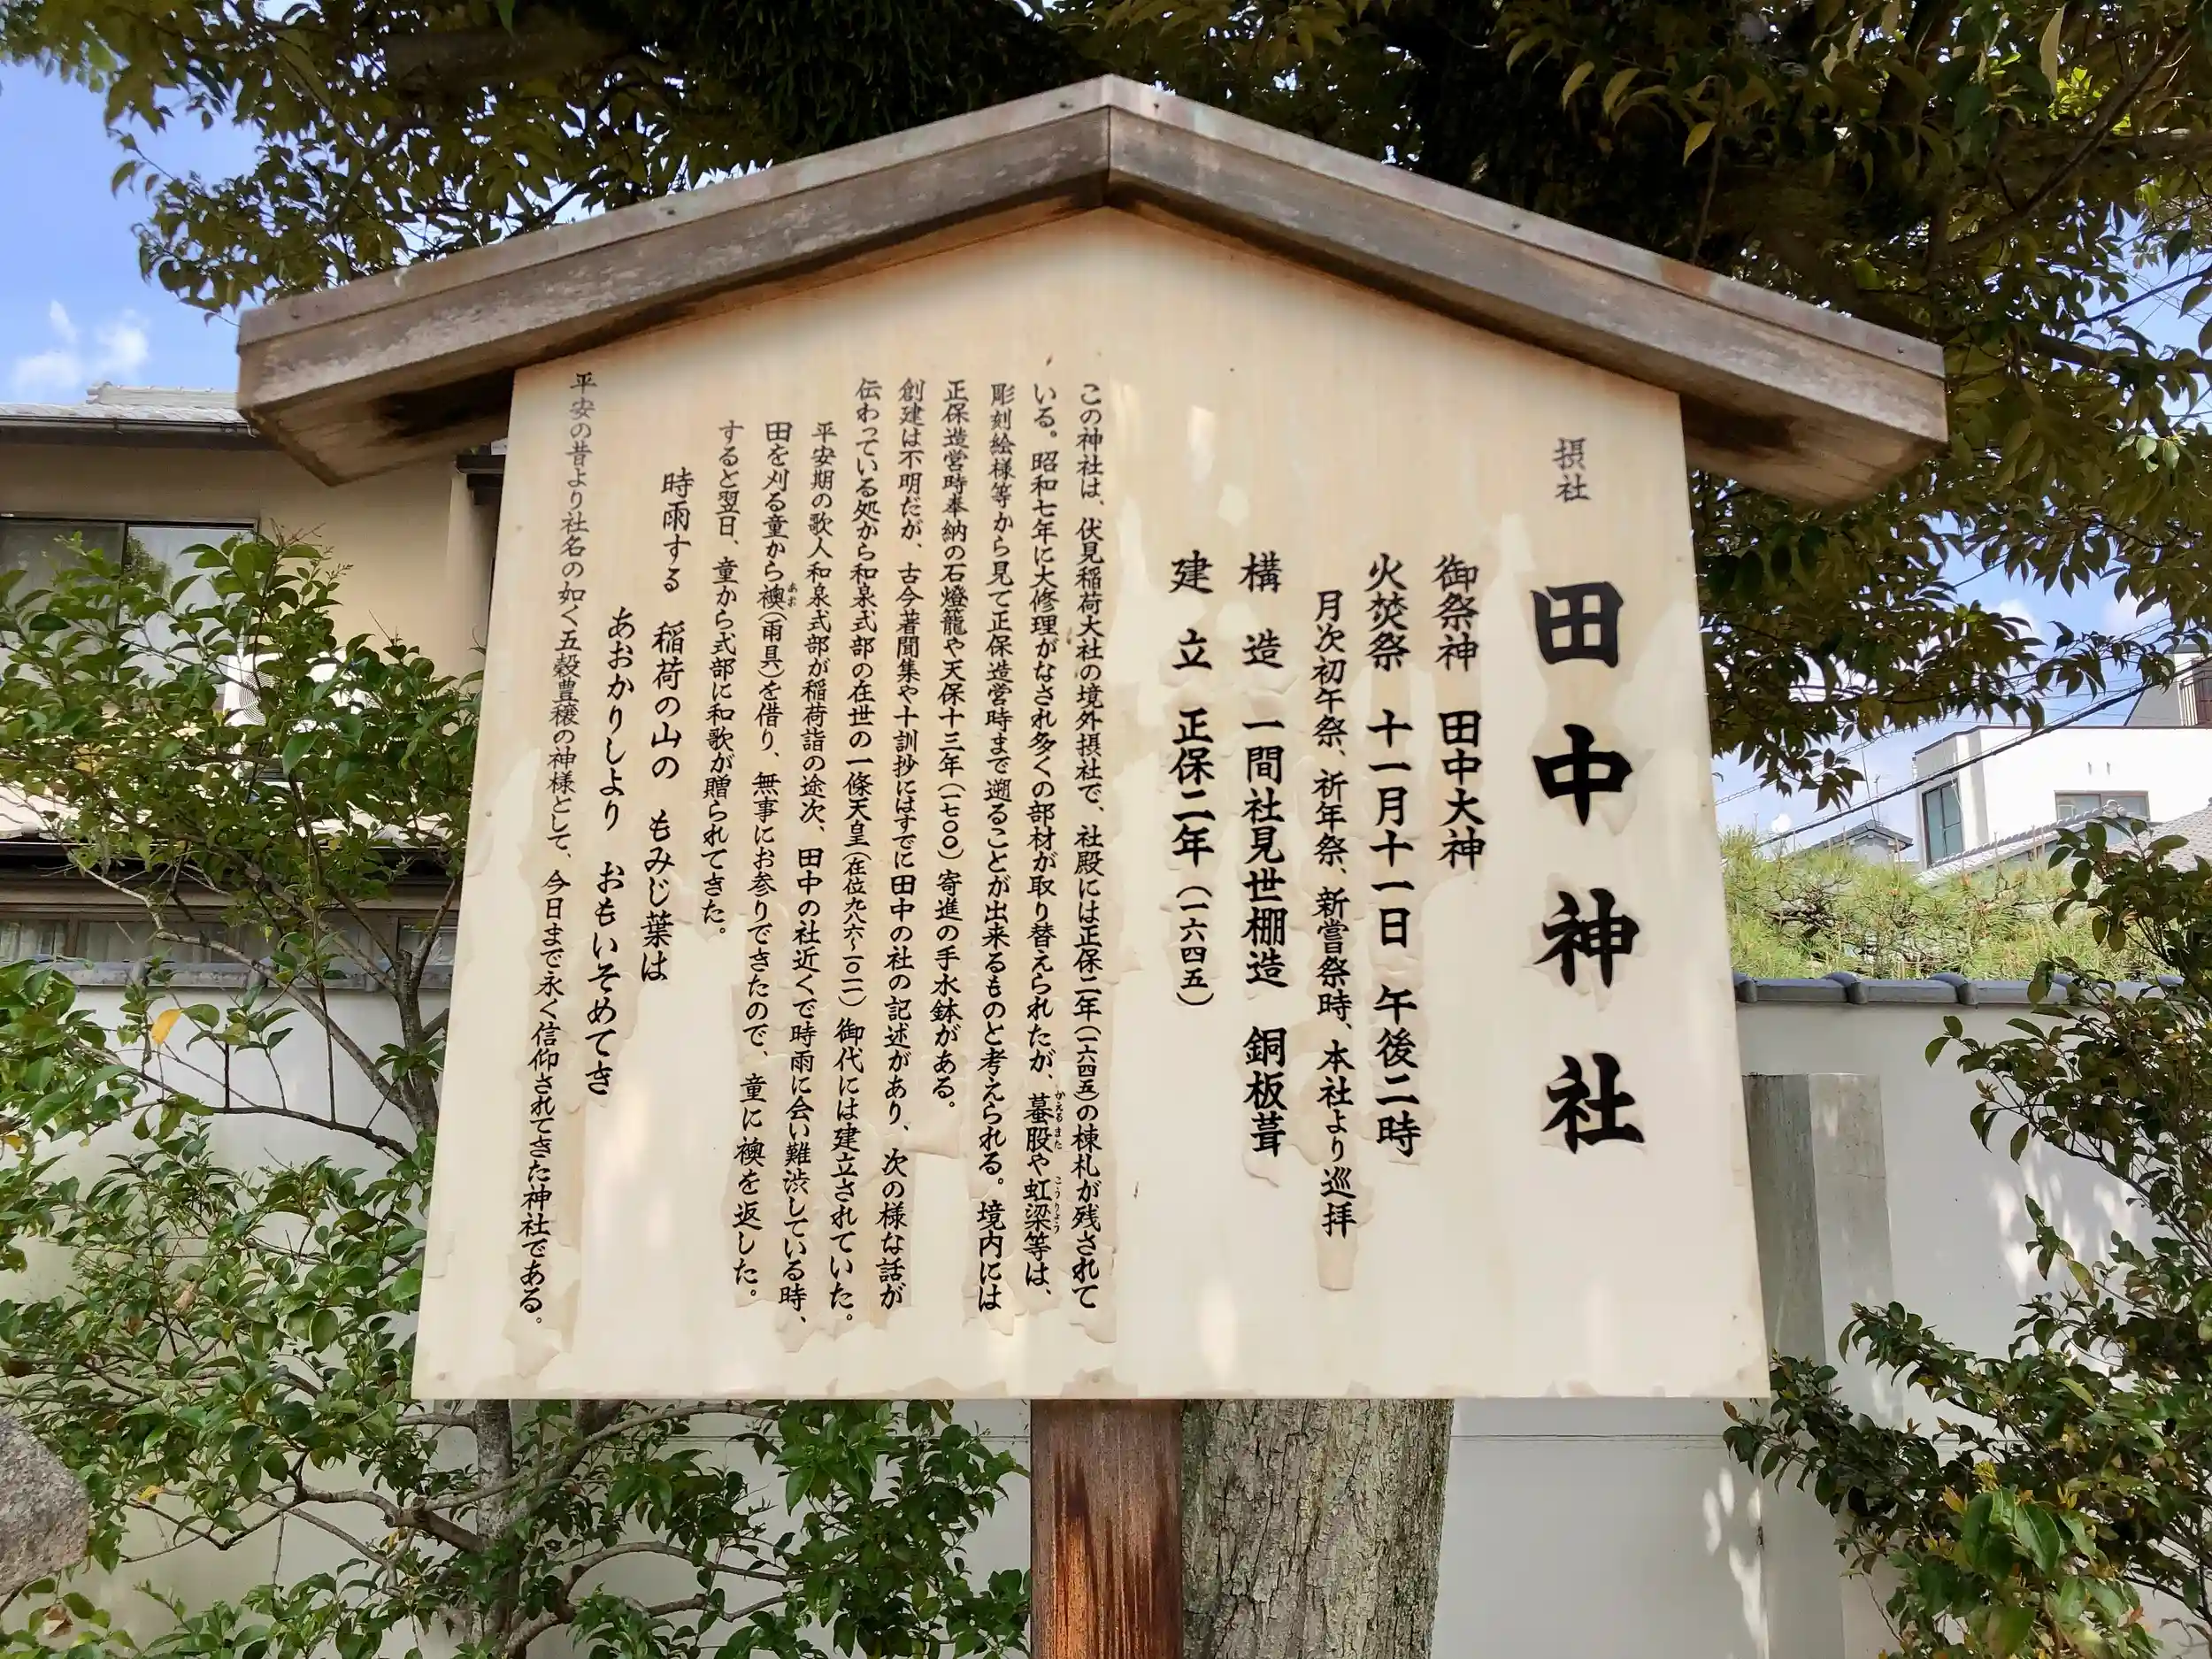 摂社
田中神社
御祭神 田中大神
火焚祭 十一月十一日 午後二時
月次初午祭、祈年祭、新嘗祭時、本社より巡拝
構造 一間社見世棚造 銅板葺
建立 正保二年(一六四五)
この神社は、伏見稲荷大社の境外摂社で、社殿には正保二年(一六四五)の棟札が残されて
いる。昭和七年に大修理がなされ多くの部材が取り替えられたが、蟇股や虹梁等は、
かえるまた こうりょう
彫刻絵様等から見て正保造営時まで遡ることが出来るものと考えられる。境内には
正保造営時奉納の石燈籠や天保十三年(一七〇〇)寄進の手水鉢がある。
創建は不明だが、古今著聞集や十訓抄にはすでに田中の社の記述があり、次の様な話が
伝わっている処から和泉式部の在世の一條天皇(在位九八六〜一〇一一)御代には建立されていた。
平安期の歌人和泉式部が稲荷詣の途次、田中の社近くで時雨に会い難渋している時、
田を刈る童から襖(雨具)を借り、無事にお参りできたので、童に襖を返した。
あお
すると翌日、童から式部に和歌が贈られてきた。
時雨する 稲荷の山の もみじ葉は
あおかりしより おもいそめてき
平安の昔より社名の如く五穀豊穣の神様として、今日まで永く信仰されてきた神社である。